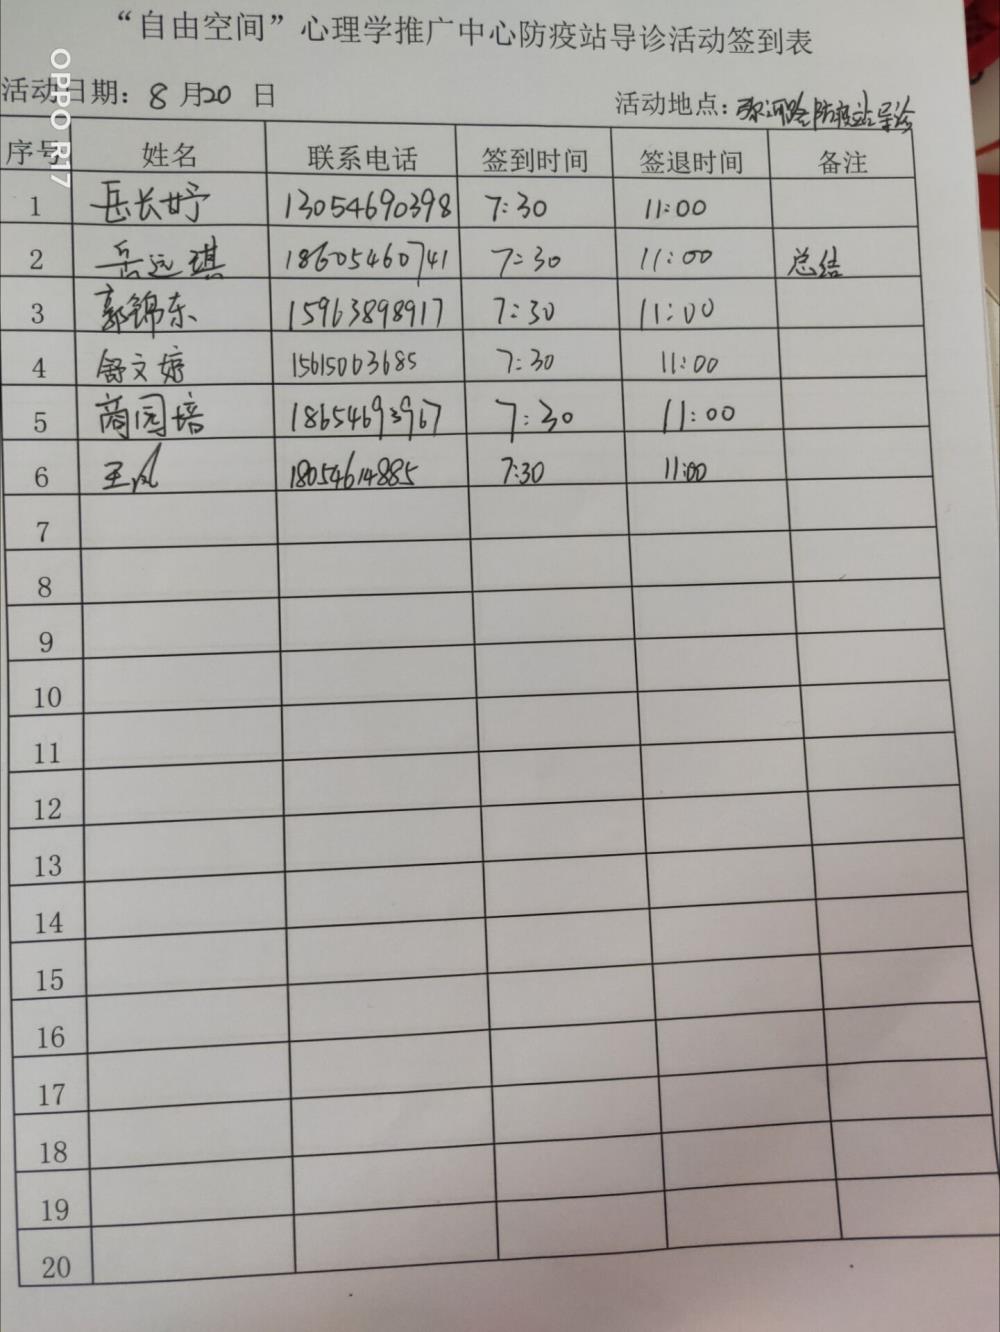 “自由空间”心理学推广中心防疫站导诊活动签到表
活动日期：8月20日 活动地点：河路防疫站导诊
序号 姓名 联系电话 签到时间 签退时间 备注
1 岳长妤 13054690398 7:30 11:00
2 岳远琪 18605460741 7:30 11:00 总结
3 郭锦东 15963898917 7:30 11:00
4 舒文婷 15615003685 7:30 11:00
5 商园培 18654693967 7:30 11:00
6 王凤 18054614885 7:30 11:00
7
8
9
10
11
12
13
14
15
16
17
18
19
20
OPPO R17